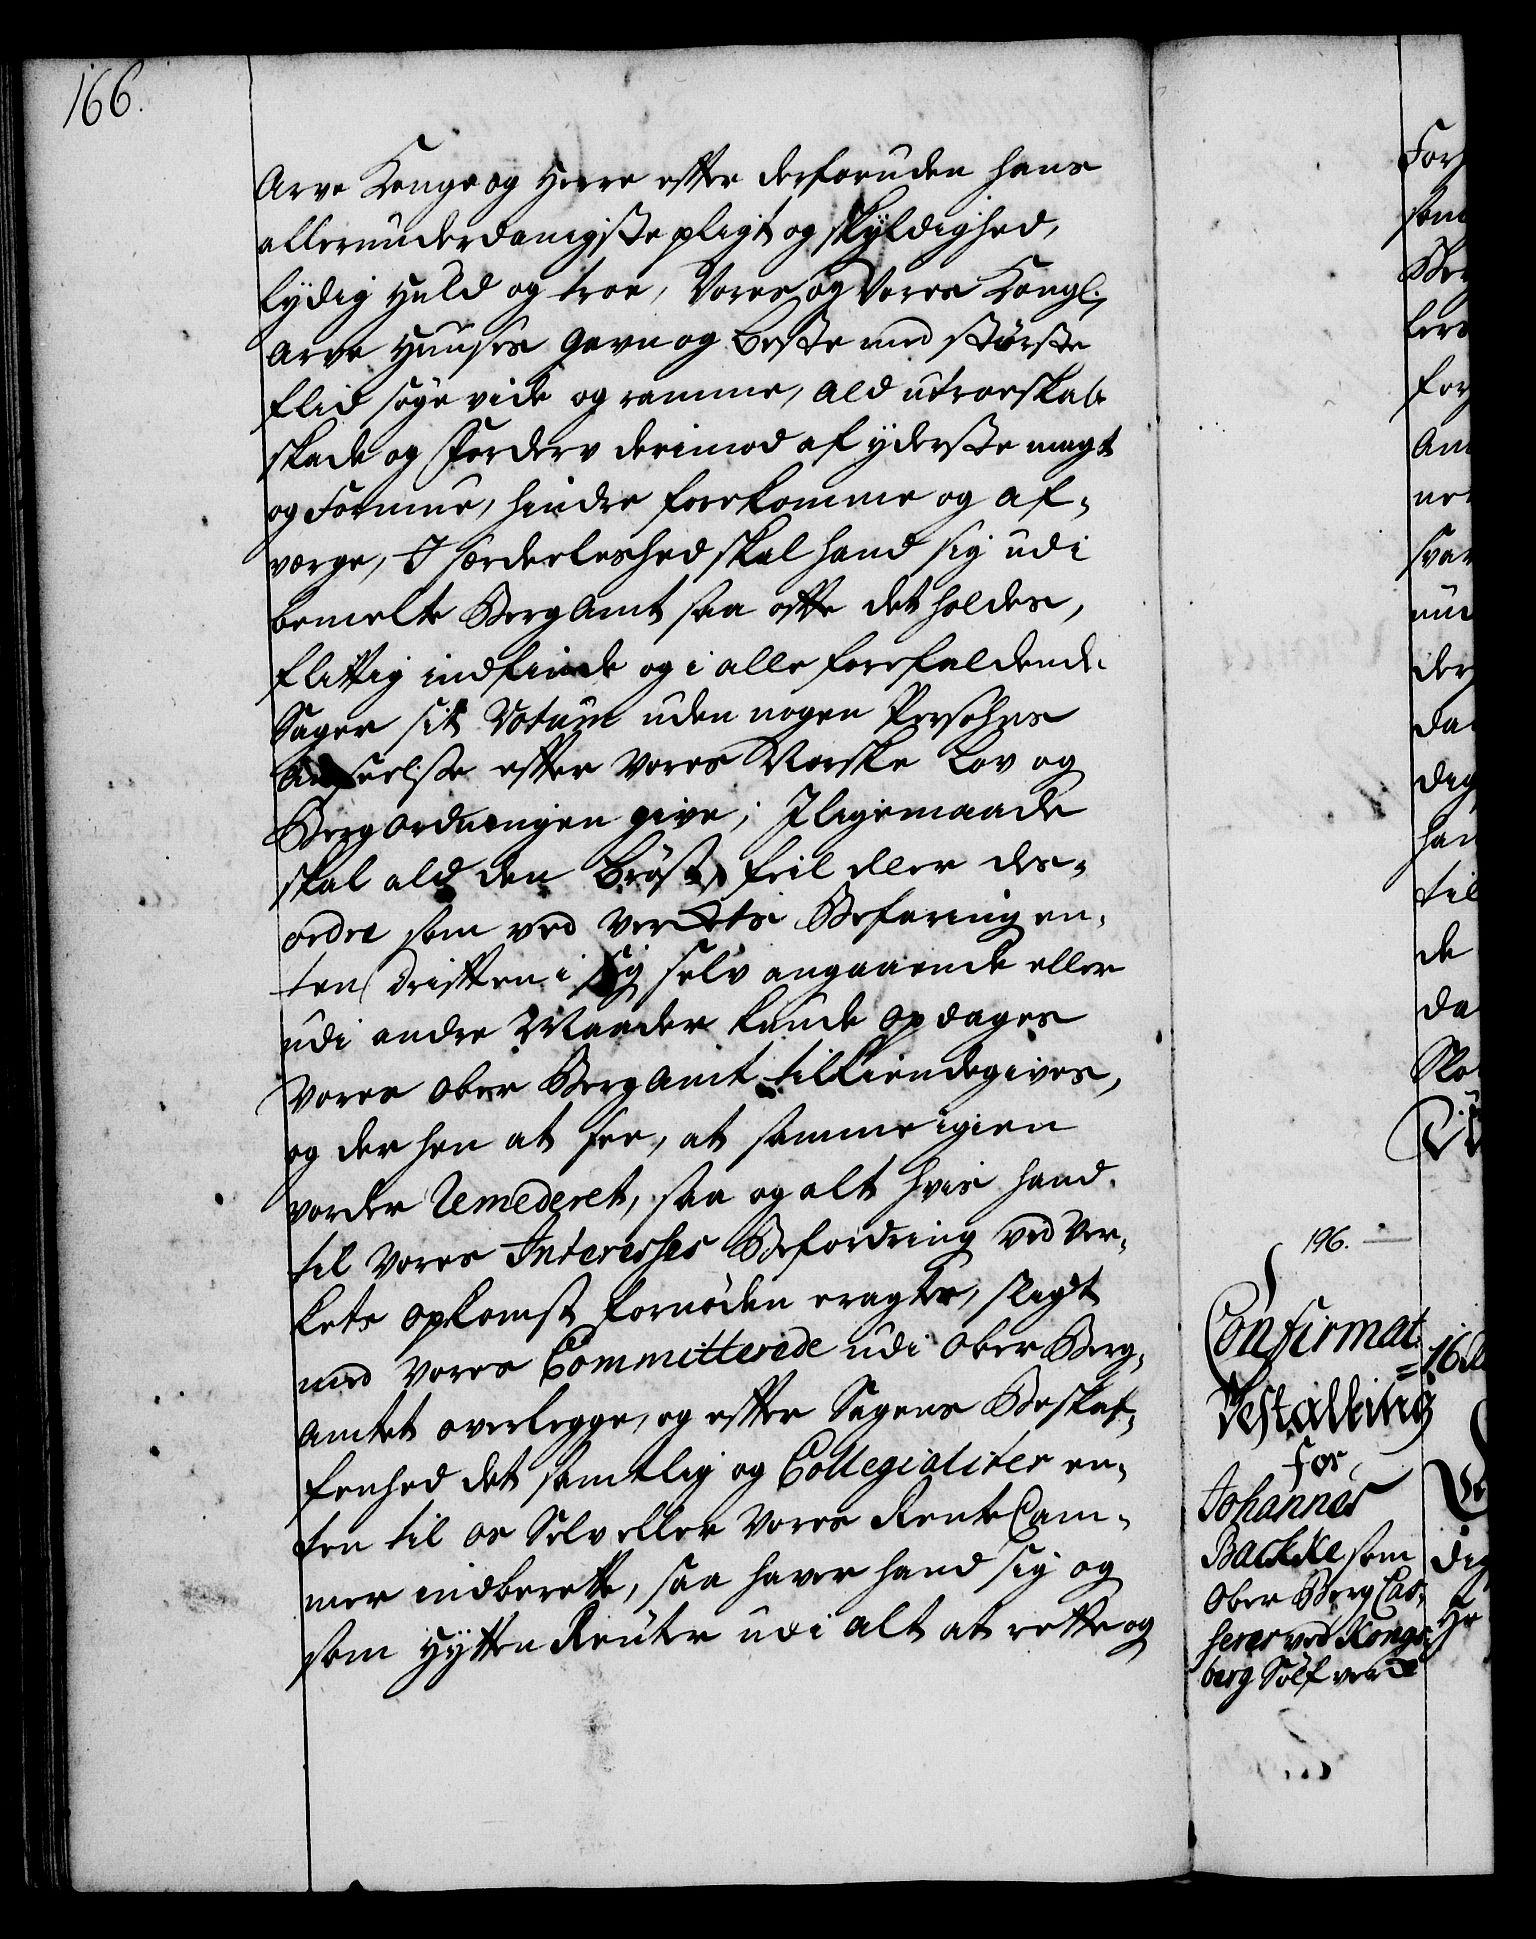 166.
Arve Konge og Herre efter derforuden hans
allerunderdanigste pligt og skyldighed,
lydig huld og troe, Vores og Vores Kongl:
Arve Huuses gavn og beste med störste
flid söge vide og ramme, ald utroeskab
skade og Forderv derimod af yderste magt
og Formue, hindre forekomme og af-
værge, I særdeleshed skal hand sig udi
bemelte BergAmt saa ofte det holdes,
flittig indfinde og i alle forefaldende
Sager sit Votum uden nogen Persohns
Anseelse efter Vores Norske Lov og
Bergordningen give; Jligemaade
skal ald den Bröst, feil eller des-
ordre som ved Verkets Befaring en-
ten driften i sig selv angaaende eller
udi andre Maader kunde opdages
Vores Ober BergAmt tilkiendegives,
og der hen at see, at samme igien
vorder Remederet, saa og alt hvis hand
til Vores Interesses Befordring ved Ver-
kets opkomst fornöden eragter, sligt
med Vores Committerede udi Ober Berg-
Amtet overlegge, og efter Sagens Beskaf-
fenhed det samtlig og Collegialiter en-
ten til os Selv eller Vores RenteCam-
mer indberette, saa haver hand sig og
som HyttenReuter udi alt at rette og
196.
Confirmat:
Bestalling
for
Johannes
Backke som
Ober Berg Cas-
serer ved Kongs-
berg Sölfverk